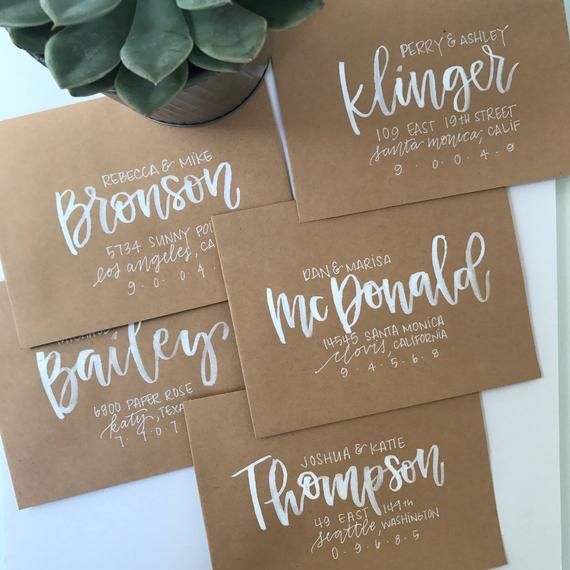 PERRY & ASHLEY
Klinger
109 EAST 19TH STREET
santa monica, CALIF
9 0 0 4 9
REBECCA & MIKE
Bronson
5734 SUNNY
los angeles,
9 · 0 · 0 4 ·
DAN & MARISA
McDonald
14545 SANTA MONICA
clovis, CALIFORNIA
9 4 5 6 8
Bailey
6800 PAPER ROSE
katy, TEXA
7 · 9 0 7
JOSHUA & KATIE
Thompson
49 EAST 149th
seattle, WASHINGTON
0 · 9 · 6 8 5